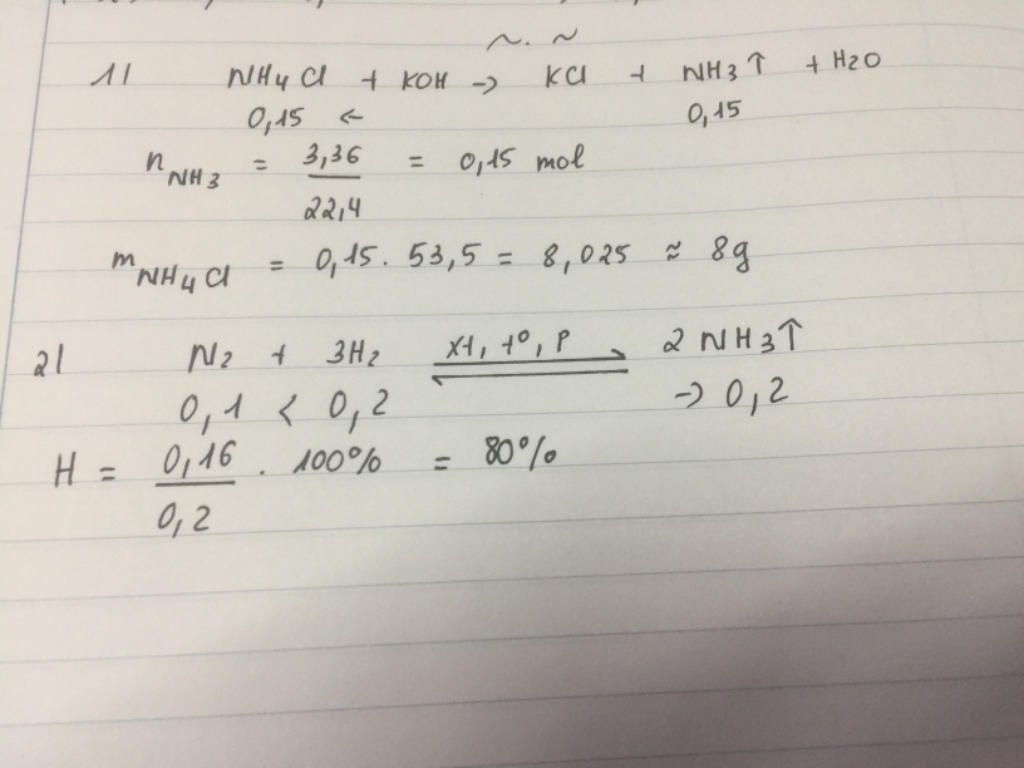 1) NH4Cl + KOH → KCl + NH3↑ + H2O
0,15 ← 0,15
nNH3 = 3,36 / 22,4 = 0,15 mol
mNH4Cl = 0,15 . 53,5 = 8,025 ≈ 8g
2) N2 + 3H2 xt, t°, P ⇌ 2NH3↑
0,1 < 0,2 → 0,2
H = 0,16 / 0,2 . 100% = 80%